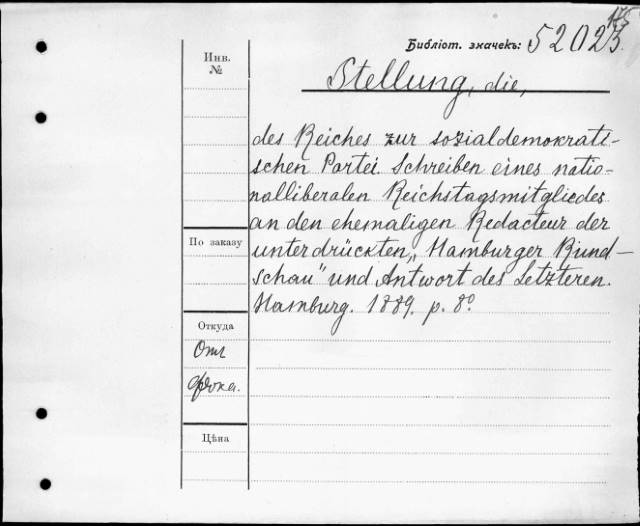 Библіот. значекъ: 52023.
Инв.
№
Stellung, die,
des Reiches zur sozialdemokrati-
schen Partei. Schreiben eines natio-
nalliberalen Reichstagsmitgliedes
an den ehemaligen Redacteur der
unterdrückten „Hamburger Rund-
schau" und Antwort des Letzteren.
Hamburg. 1889. p. 8º
По заказу
Откуда
Отг
Цѣна